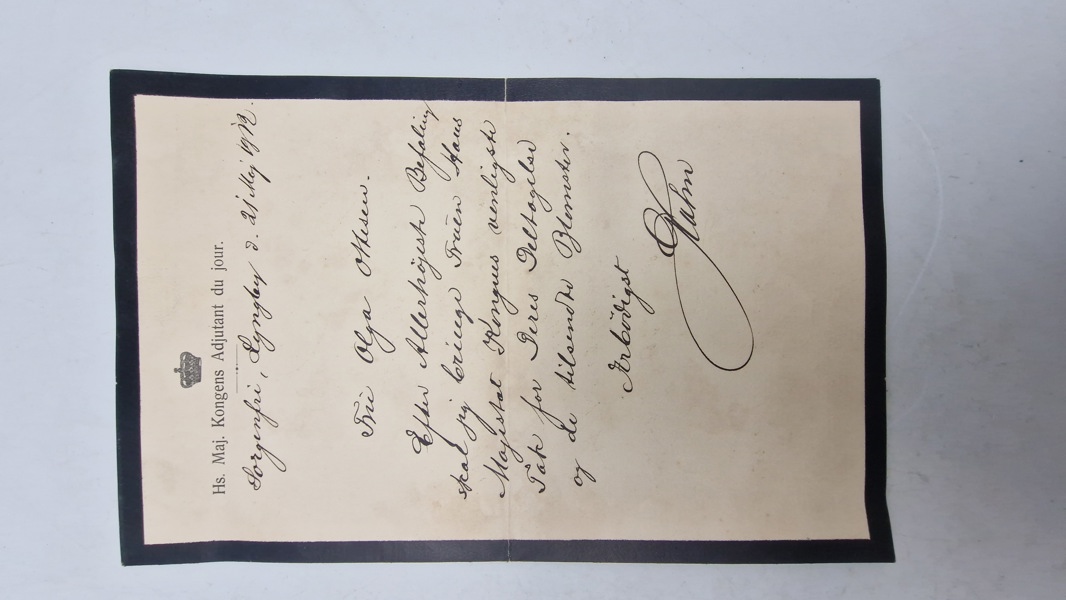 Hs. Maj. Kongens Adjutant du jour.
Sorgenfri, Lyngby d. 21 Maj 1912.
Frú Olga Ottesen.
Efter Allerhøjeste Befaling
skal jeg bringe Fruen Hans
Majestæt Kongens venligste
Tak for Deres Deltagelse
og de tilsendte Blomster.
Ærbødigst